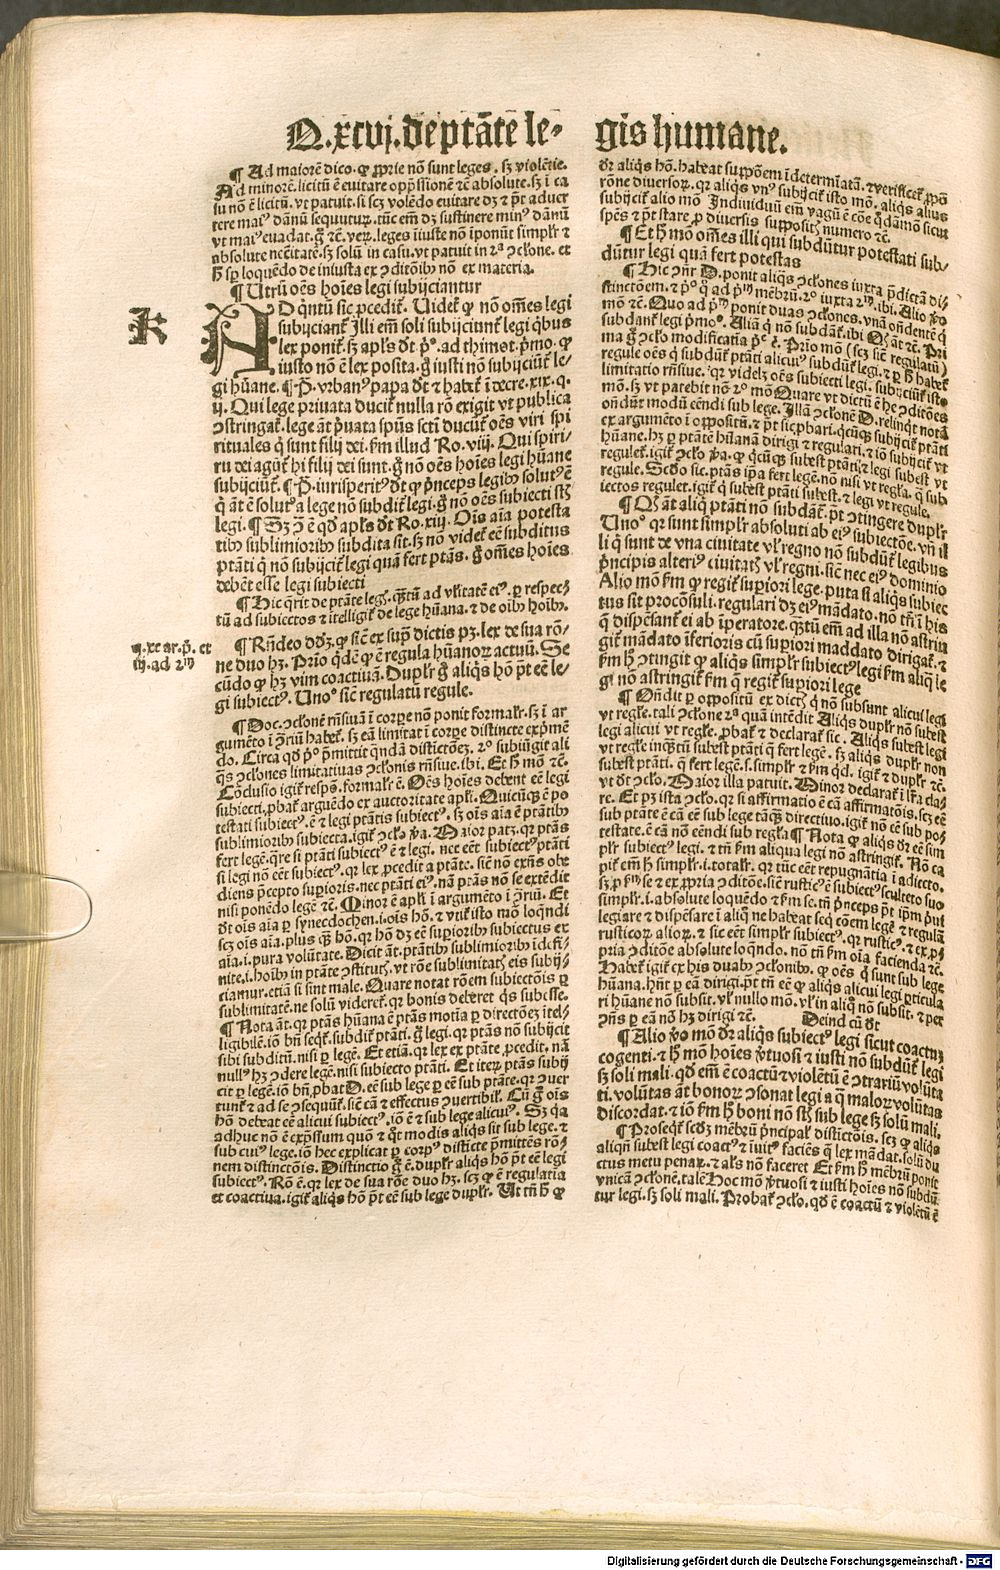 Q.xcvj.de ptāte le-
gis humane.
¶ Ad maiorē dico.ꝙ ꝓprie nō sunt leges.sꝫ violētie.
Ad minorē.licitū ē euitare opp̄ssionē ⁊c̄ absolute.sꝫ ī ca
su nō ē licitū.vt patuit.si scꝫ volēdo euitare dꝫ ⁊ p̄t aduer
tere maiꝰ dānū sequuturꝫ.tūc em̄ dꝫ sustinere minꝰ dānū
vt maiꝰ euadat.g̊ ⁊c̄.veꝝ.leges iiuste nō īponūt simplr̄ ⁊
absolute necc̄itatē.sꝫ solū in casu.vt patuit in 2ª ꝯclone.et
h̄ sꝑ loquēdo de iniusta ex ꝯditōibꝰ nō ex materia.
¶ Utrū oēs hoīes legi subijciantur
K
AD q̇ntū sic ꝓcedit᷑. Uidet᷑ ꝙ nō om̄es legi
subijciant᷑ Illi em̄ soli subijciunt᷑ legi q̇bus
lex ponit᷑.sꝫ apl̄s dt̄ pº.ad thimot.p̄mo.ꝙ
iusto nō ē lex posita.g̊ iusti nō subijciūt᷑ le-
gi hūane.¶ P̄.vrbanꝰ papa dt̄ ⁊ habet᷑ ī decre.xix.q.
ij. Qui lege priuata ducit᷑ nulla rō exigit vt publica
ꝯstringat᷑.lege āt p̄uata spūs sctī ducūt᷑ oēs viri spi
rituales q̇ sunt filij dei.ẜm illud Ro.viij. Qui spiri-
tu dei agūt᷑ hi filij dei sunt.g̊ nō oēs hoīes legi hūane
subijciūt᷑.¶ P̄.iurisperitꝰ dt̄ ꝙ p̄nceps legibꝰ solutꝰ ē
q̇ āt ē solutꝰ a lege nō subdit᷑ legi.g̊ nō oēs subiecti st̄
legi.¶ Sꝫ ꝯ ē qd̄ apl̄s dt̄ Ro.xiij. Oīs aīa potesta
tibꝰ sublimioribꝰ subdita sit.sꝫ nō videt᷑ eē subditus
ptāti q̇ nō subijcit᷑ legi quā fert ptās.g̊ om̄es hoīes
debēt esse legi subiecti
¶ Hic q̄rit de ptāte leg̣.q̄tū ad vl̄itatē eiꝰ.ꝑ respec⸗
tū ad subiectos ⁊ itelligit᷑ de lege hūana.⁊ de oībꝰ hoībꝰ.
q.xc ar.p̄.et
iij.ad 2ᵐ
¶ Rn̄deo dd̄ꝫ.ꝙ sic̄ ex suꝑ dictis pꝫ.lex de sua rō-
ne duo hꝫ. Prīo q̇dē ꝙ ē regula hūanoꝝ actuū. Se
cūdo ꝙ hꝫ vim coactiuā. Duplr̄ g̊ aliq̇s hō p̄t eē le-
gi subiectꝰ. Unoº sic̄ regulatū regule.
¶ Doc.ꝯclonē rn̄siuā ī corꝑe nō ponit formalr̄.sꝫ ī ar
gumēto ī ꝯ̄riū habet᷑.sꝫ eā limitat ī corꝑe distincte exp̄mē
do. Circa qd̄ pº p̄mittit q̇ndā distictōeꝫ. 2º subiūgit ali
q̄s ꝯclones limitatiuas ꝯclonis rn̄siue.ibi. Et h̄ mō ⁊c̄.
Cōclusio igit᷑ respō.formalr̄ ē. Oēs hoīes debent eē legi
subiecti.ꝓbat᷑ arguēdo ex auctoritate apl̄i. Quicūq̄ ē po
testati subiectꝰ.ē ⁊ legi ptātis subiectꝰ.sꝫ oīs aīa ē ptātibꝰ
sublimioribꝰ subiecta.igit᷑ ꝯclo v̄a. Maior patꝫ.qr ptās
fert legē.q̄re si ptāti subiectꝰ ē ⁊ legi.nec eēt subiectꝰ ptāti
si legi nō eēt subiectꝰ.qr lex ꝓcedit a ptāte.sic̄ nō exn̄s obe
diens p̄cepto suꝑioris.nec ptāti eiꝰ.nā ptās nō se extēdit
nisi ponēdo legē ⁊c̄. Minor ē apl̄i ī argumēto ī ꝯ̄riū. Et
dt̄ oīs aīa ꝑ synecdochen.i.oīs hō.⁊ vtit᷑ isto mō loq̄ndi
scꝫ oīs aīa.plus q̄ꝫ hō.qr hō dꝫ eē suꝑioribꝰ subiectus ex
aīa.i.pura volūtate. Dicit āt.ptātibꝰ sublimioribꝰ īdefi-
nite.i.hoībꝰ in ptāte ꝯstitutꝭ.vt rōe sublimitatꝭ eis subij-
ciamur.etiā si sint male. Quare notat rōem subiectōis ꝑ
sublimitatē.ne solū videret᷑.qr bonis deberet q̇s subesse.
¶ Nota āt.qr ptās hūana ē ptās motīa ꝑ directōeꝫ itel-
ligibilē.iō bn̄ seqt᷑.subdit᷑ ptāti.g̊ legi.qr ptās nō subijcit
sibi subditū.nisi ꝑ legē. Et etiā.qr lex ex ptāte ꝓcedit.nā
nullꝰ hꝫ ꝯdere legē.nisi subiecto ptāti. Et iteꝝ ptās subij
cit ꝑ legē.iō bn̄.ꝓbat D.eē sub lege ꝑ eē sub ptāte.qr ꝯuer
tunt᷑ ⁊ ad se ꝯsequūt᷑.sic̄ cā ⁊ effectus ꝯuertibil'. Cū g̊ oīs
hō debeat eē alicui subiectꝰ.iō ē ⁊ sub lege alicuiꝰ. Sꝫ q̇a
adhuc nō ē exp̄ssum quō ⁊ q̇t modis aliq̇s sit sub lege.⁊
sub cuiꝰ lege.iō hec explicat ꝑ corpꝰ disticte p̄mittēs rō-
nem distinctōis. Distinctio g̊ ē.duplr̄ aliq̇s hō p̄t eē legi
subiectꝰ. Rō ē.qr lex de sua rōe duo hꝫ.scꝫ ꝙ ē regulatia
et coactiua.igit᷑ aliq̇s hō p̄t eē sub lege duplr̄. Ut tn̄ h̄ ꝙ
dr̄ aliq̇s hō.habeat suppōem īdetermīatā.⁊ verificet᷑ ꝓpō
rōne diuersoꝝ.qr aliq̇s vnꝰ subijcit᷑ isto mō.aliq̇s alius
subijcit᷑ alio mō Indiuiduū em̄ vagū ē cōe q̇dāmō sicut
spēs ⁊ p̄t stare ꝓ diuersis suppositꝭ numero ⁊c̄.
¶ Et h̄ mō om̄es illi qui subdūtur potestati sub-
dūtur legi quā fert potestas
¶ Hic ꝯn̄r D.ponit aliq̄s ꝯclones iuxta p̄dictā di-
stinctōem.⁊ pº q̇ ad p̄ᵐ mēbrū.2º iuxta 2ᵐ.ibi. Alio v̄o
mō ⁊c̄. Quo ad p̄ᵐ ponit duas ꝯclones.vnā on̄dentē q̇
subdant᷑ legi p̄moº. Aliā q̇ nō subdāt᷑.ibi Oꝫ āt ⁊c̄. Pri
ma g̊ ꝯclo modificatīa p̄ᵉ ē. Prīo mō (scꝫ sic̄ regulatū)
regule oēs q̇ subdūt᷑ ptāti alicuiꝰ subdūt᷑ legi.⁊ ꝑ h̄ habet᷑
limitatio rn̄siue.qr videlꝫ oēs subiecti legi.subijciūt᷑ isto
mō.sꝫ vt patebit nō 2º mō Quare vt dictū ē hec ꝯditōes
on̄dūt modū eēndi sub lege. Illā ꝯclonē D.relinqt notā
ex argumēto ī oppositū.⁊ p̄t sic ꝓbari.q̇cūq̄ subijcit᷑ ptāti
hūane.hꝫ ꝑ ptātē hūanā dirigi ⁊ regulari.⁊ iō subijcit᷑ vt
regulet᷑.igit᷑ ꝯclo v̄a.ꝙ q̇cūq̄ subest ptāti ⁊ legi subest vt
regule. Scd̄o sic.ptās ip̄a fert legē.nō nisi vt regl̄a.q̇ sub
iectos regulet.igit᷑ q̇ subest ptāti subest.⁊ legi vt regule.
¶ Oꝫ āt aliq̇ ptāti nō subdāt᷑.p̄t ꝯtingere duplr̄
Unoº qr sunt simplr̄ absoluti ab eiꝰ subiectōe.vn̄ il
li q̇ sunt de vna ciuitate vl̄ regno nō subdūt᷑ legibus
p̄ncipis alteriꝰ ciuitatꝭ vl̄ regni.sic̄ nec eiꝰ dominio
Alio mō ẜm ꝙ regit᷑ suꝑiori lege.puta si aliq̇s subiec
tus sit procōsuli.regulari dꝫ eiꝰ mādato.nō tn̄ ī his
q̄ dispēsant᷑ ei ab īperatore.q̄tū em̄ ad illa nō astrin
git᷑ mādato īferioris cū suꝑiori maddato dirigat᷑.⁊
ẜm h̄ ꝯtingit ꝙ aliq̇s simplr̄ subiectꝰ legi ẜm aliq̇ le
gi nō astringit᷑ ẜm q̇ regit᷑ suꝑiori lege
¶ On̄dit ꝑ oppositū ex dictꝭ q̇ nō subsunt alicui legi
vt regl̄e.tali ꝯclone 2ª quā intēdit Aliq̇s duplr̄ nō subest
legi alicui vt regl̄e.ꝓbat᷑ ⁊ declarat᷑ sic. Aliq̇s subest legi
vt regl̄e inq̄tū subest ptāti q̄ fert legē.sꝫ aliq̇s duplr̄ non
subest ptāti.q̄ fert legē.s.simplr̄ ⁊ ẜm qd.igit᷑ ⁊ duplr̄ ⁊c̄.
vt dt̄ ꝯclo. Maior illa patuit. Minor declarat᷑ ī lr̄a cla-
re. Et pꝫ ista ꝯclo.qr si affirmatio ē cā affirmatōis.scꝫ eē
sub ptāte ē cā eē sub lege tāq̄ꝫ directiuo.igit᷑ nō eē sub po-
testate.ē cā nō eēndi sub regl̄a ¶ Nota ꝙ aliq̇s dr̄ eē sim
plr̄ subiectꝰ legi.⁊ tn̄ ẜm aliqua legi nō astringit᷑. Nō ca
pit᷑ em̄ h̄ simplr̄.i.totalr̄.qr tūc eēt repugnātia ī adiecto.
sꝫ.ꝓ ẜᵐ se ⁊ ex ꝓpria ꝯditōe.sic̄ rusticꝰ ē subiectꝰ sculteto suo
simplr̄.i.absolute loquēdo ⁊ ẜm se.tn̄ p̄nceps p̄t ip̄m p̄ui
legiare ⁊ dispēsare ī aliq̇ ne habeat seq̄ cōem legē ⁊ regulā
rusticoꝝ alioꝝ.⁊ sic eēt simplr̄ subiectꝰ.qr rusticꝰ.⁊ ex ꝓ-
pria ꝯditōe absolute loq̄ndo.nō tn̄ ẜm oīa facienda ⁊c̄.
Habet᷑ igit᷑ ex his duabꝰ ꝯclonibꝰ.ꝙ oēs q̇ sunt sub lege
hūana.hn̄t ꝑ eā dirigi.p̄t tn̄ eē ꝙ aliq̇s alicui legi ꝑticula
ri hūane nō subsit.vl̄ nullo mō.vl̄ in aliq̇ nō subsit.⁊ ꝑ
ꝯn̄s ꝑ eā nō hꝫ dirigi ⁊c̄. Deind cū dt̄
¶ Alio v̄o mō dr̄ aliq̇s subiectꝰ legi sicut coactū
cogenti.⁊ h̄ mō hoīes v̄tuosi ⁊ iusti nō subdūt᷑ legi
sꝫ soli mali.qd̄ em̄ ē coactū ⁊ violētū ē ꝯtrariū volūta
ti.volūtas āt bonoꝝ ꝯsonat legi a q̇ maloꝝ volūtas
discordat.⁊ iō ẜm h̄ boni nō st̄ sub lege sꝫ solū mali.
¶ Proseqt᷑ scd̄ꝫ mēbrū p̄ncipal' distictōis.scꝫ ꝙ aliq̇s
aliqn̄ subest legi coactꝰ ⁊ īuitꝰ faciēs q̄ lex mādat.solū du
ctus metu penaꝝ.⁊ al̄s nō faceret Et ẜm h̄ mēbrū ponit
vnicā ꝯclonē.talē Hoc mō v̄tuosi ⁊ iusti hoīes nō subdū
tur legi.sꝫ soli mali. Probat᷑ ꝯclo.qd̄ ē coactū ⁊ violētū ē
Digitalisierung gefördert durch die Deutsche Forschungsgemeinschaft - DFG